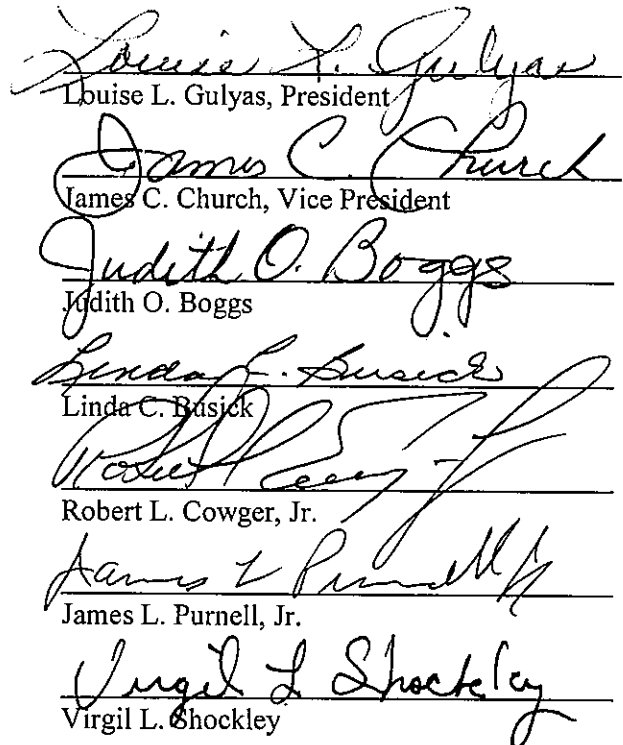 Louise L. Gulyas
Louise L. Gulyas, President
James C. Church
James C. Church, Vice President
Judith O. Boggs
Judith O. Boggs
Linda C. Busick
Linda C. Busick
Robert L. Cowger, Jr.
James L. Purnell, Jr.
James L. Purnell, Jr.
Virgil L. Shockley
Virgil L. Shockley